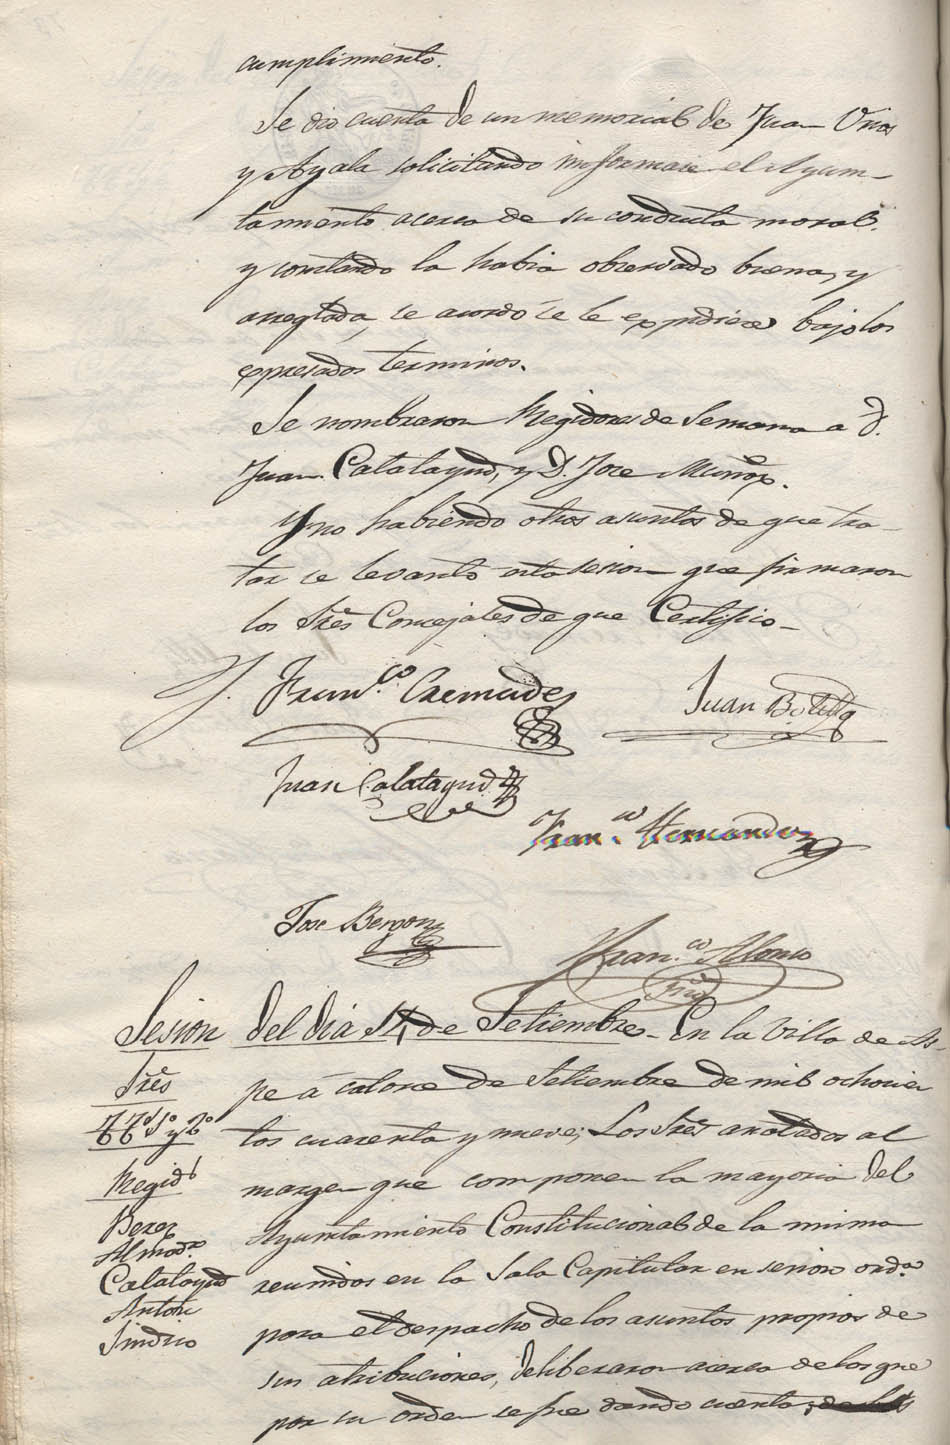 cumplimiento.
Se dio cuenta de un memorial de Juan
y Ayala solicitando informase el Ayun-
tamiento acerca de su conducta moral.
y constando la habia observado buena, y
arreglada, se acordó se le expidiese bajo los
expresados terminos.
Se nombraron Regidores de Semana a D.
Juan Calatayud, y D. Jose Muñoz.
Y no habiendo otros asuntos de que tra-
tar se levantó esta sesion que firmaron
los Sres Concejales de que Certifico-
Franco. Cremades
Juan Botella
Juan Calatayud
Franco. Hernandez
Jose
Franco. Alonso
Srio
Sesion del dia 14, de Setiembre- En la Villa de As-
Sres
pe á catorce de Setiembre de mil ochocien
TT. 1º y 2º
tos cuarenta y nueve; Los Sres anotados al
Regid.s
margen que componen la mayoria del
Perez
Ayuntamiento Constitucional de la misma
Almodr.
Calatayud
reunidos en la Sala Capitular en sesion orda.
Anton
Sindico
para el despacho de los asuntos propios de
sus atribuciones, deliberaron acerca de los que
por su orden se fue dando cuenta,